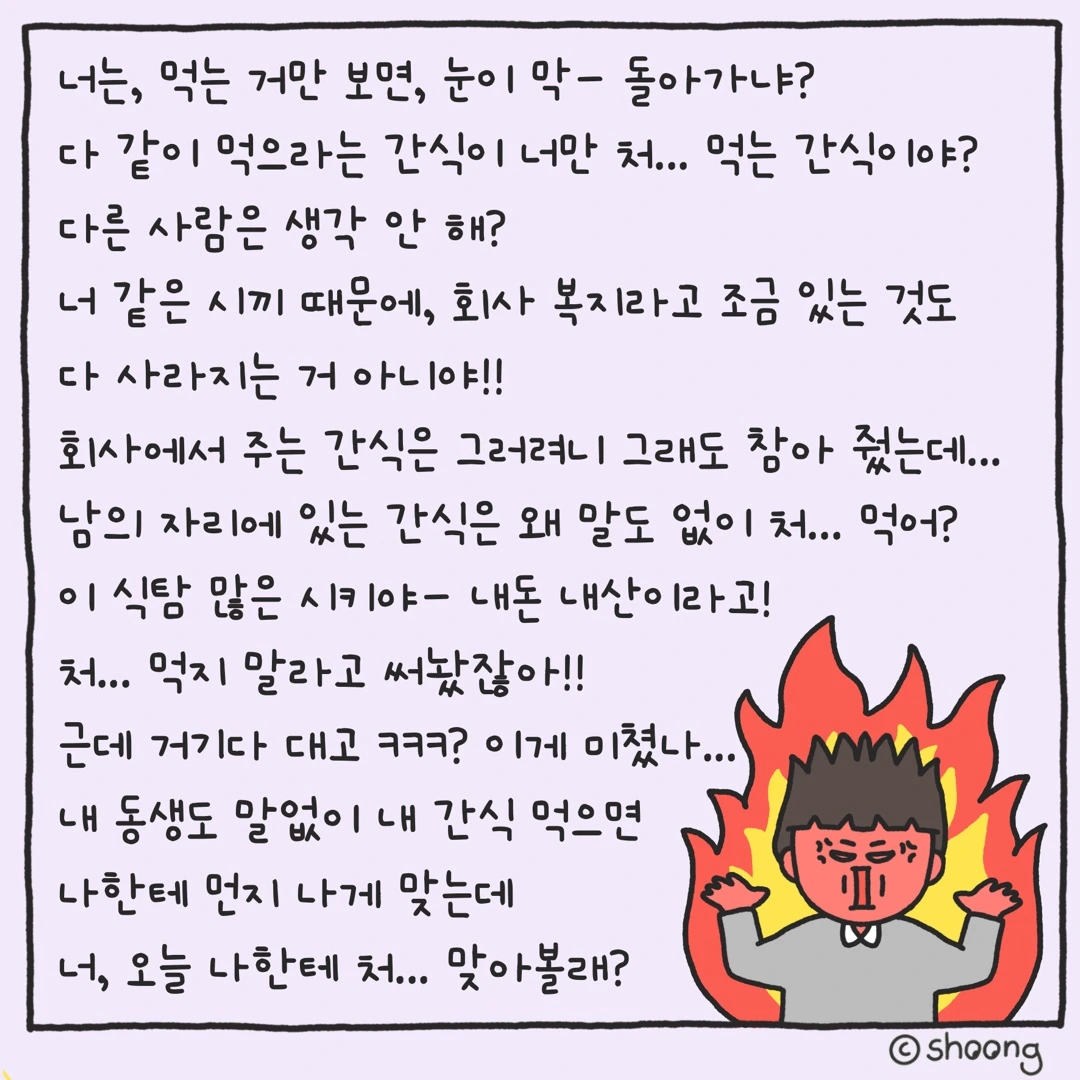 너는, 먹는 거만 보면, 눈이 막- 돌아가냐?
다 같이 먹으라는 간식이 너만 처... 먹는 간식이야?
다른 사람은 생각 안 해?
너 같은 시끼 때문에, 회사 복지라고 조금 있는 것도
다 사라지는 거 아니야!!
회사에서 주는 간식은 그러려니 그래도 참아 줬는데...
남의 자리에 있는 간식은 왜 말도 없이 처... 먹어?
이 식탐 많은 시키야- 내돈 내산이라고!
처... 먹지 말라고 써놨잖아!!
근데 거기다 대고 ㅋㅋㅋ? 이게 미쳤나...
내 동생도 말없이 내 간식 먹으면
나한테 먼지 나게 맞는데
너, 오늘 나한테 처... 맞아볼래?
ⓒshoong